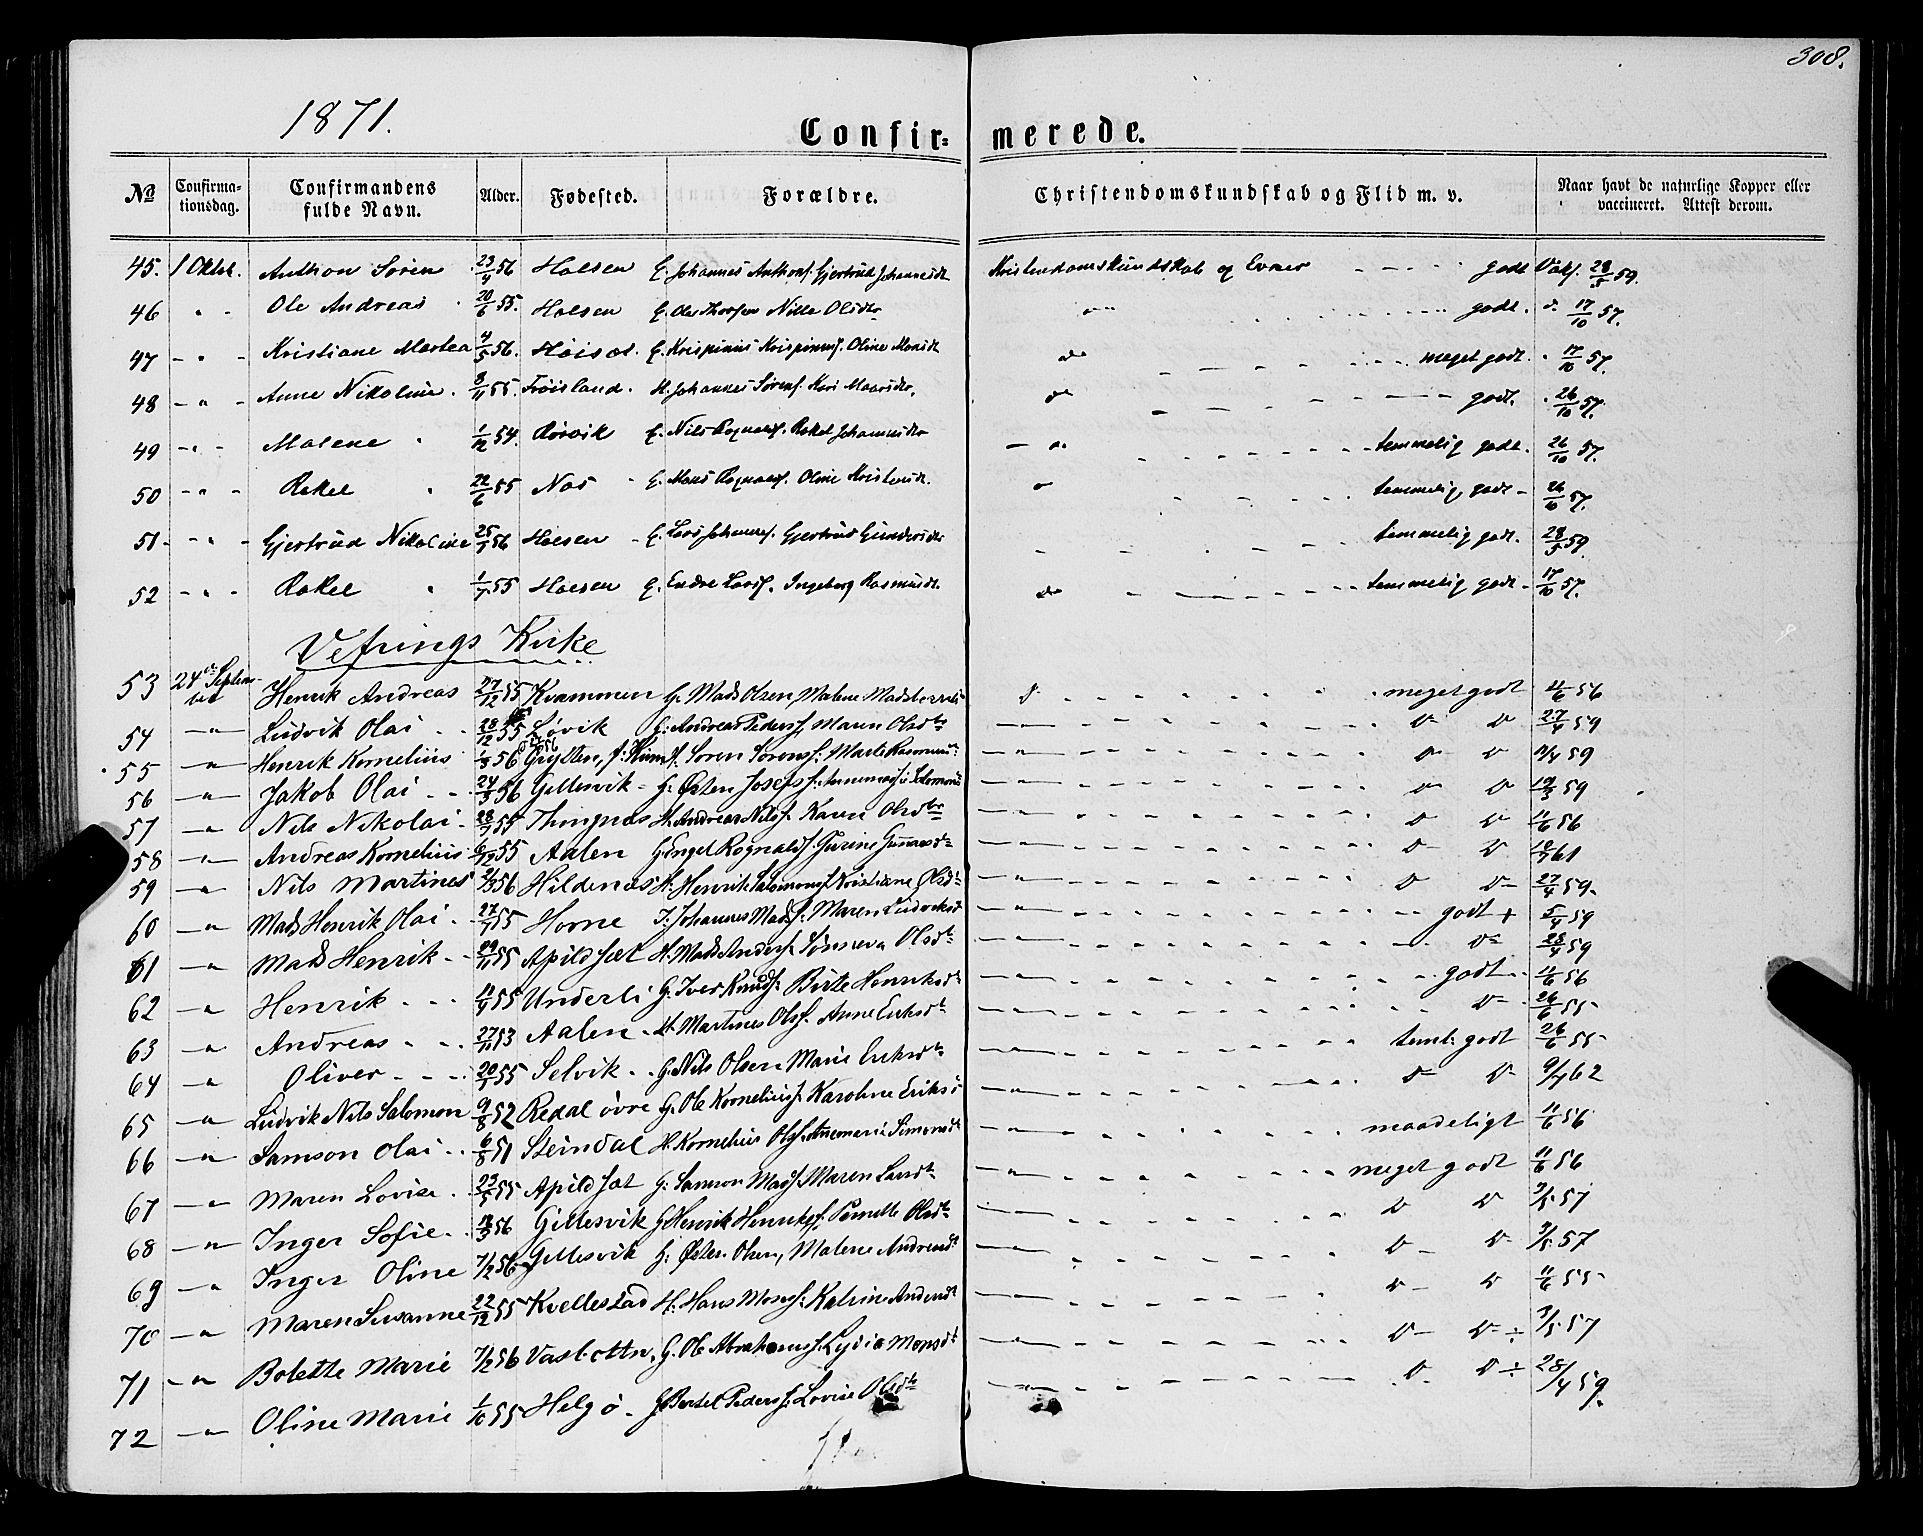 308.
1871.
Confir= merede.
No Confirma-tionsdag. Confirmandens fulde Navn. Alder. Fødested. Forældre. Christendomskundskab og Flid m. v. Naar havt de naturlige Kopper eller vaccineret. Attest derom.
45. 1 Oktbr. Anthon Søren 23/4 56 Holsen G. Johannes Anthons. Gjertrud Johannesdt Kristendomskundskab og Evner - - - - godt Vaks. 28/5 59.
46 " - Ole Andreas 20/6 55. Holsen G. Ole Thorsen Nille Olsdtr godt. 17/10 57.
47 - " - Kristiane Martea 4/5 56. G. Krispinus Krispinuss. Oline Monsdt do meget godt. 17/10 57.
48 - " - Anne Nikoline 8/11 55. Frøisland. H. Johannes Sørens. Kari Madsdtr. do godt. 26/10 57.
49 - " - Malene 1/12 54. Rørvik G. Nils Rognalds. Rakel Johannesdtr temmelig godt. 26/10 57.
50 - " - Rakel 22/6 55 Nos G. Mons Rognalds. Oline Kristensdt. temmelig godt - 26/10 57.
51 - " - Gjertrud Nikoline 56 Holsen G. Lars Johannes. Gjertrud Gundersdtr temmelig godt. 28/5 59.
52 - " - Rakel 1/7 55 Holsen G. Endre Larss. Ingeborg Rasmusdt. do temmelig godt - 17/10 57.
Vefrings Kirke
53 24de Septem-ber Henrik Andreas 27/12 55 Kvammen G. Mads Olsen, Malene meget godt 11/6 56
54 " Ludvik Olai 28/12 55 Løvik G. Andreas Peders. Maren Olsdtr 27/4 59
55 " Henrik Kornelius 56 Grytten, Søren Sørens. Marte 59
56 " Jakob Olai 24/3 56 Gillesvik G. Østen Josefs. 59
57 " Nils Nikolai 28/7 55 Thingnes H. Andreas Nilss. Karen Olsdtr 11/6 56
58 " Andreas Kornelius 55 Aalen G. Engel Rognalds. 61
59 " Nils Martines 56 Hildenes H. Henrik Salomons. Kristiane Olsdt 27/4 59
60 " Mads Henrik Olai 27/7 55 Horne Johannes Mads. Maren Ludviksd godt + 59
61 " Mads Henrik 55 Apildset H. Mads Anders. Olsdt 59
62 " Henrik 11/9 55 Underli G. Iver Knuds. Birte Henriksdt godt 11/6 56
63 " Andreas 27/11 53 Aalen H. Martines Olss. Anne Eriksdt 26/6 55
64 " Oliver 55 Selvik G. Nils Olsen Marie Eriksdt teml. godt 26/6 55
65 " Ludvik Nils Salomon 9/8 52 Redal øvre G. Ole Kornelius. Karoline Eriksd 9/7 62
66 " Samson Olai 6/8 51 Steindal H. Kornelius Olss. Annemarie Simonsdt maadeligt 11/6 56
67 " Maren Lovise 55 Apildset G. Samson Mads. Maren Larsdt meget godt 11/6 56
68 " Inger Sofie 56 Gillesvik G. Henrik Henriks. Pernelle Olsdt 57
69 " Inger Oline 7/2 56 Gillesvik G. Østen Olsen, Malene Andersdt 57
70 " Maren Susanne 22/12 55 Kvellestad H. Hans Mons. Katrine Andersdt 11/6 55
71 " Bolette Marie 7/2 56 Vasbottn. G. Ole Abrahams. Lydia Monsdt 57
72 " Oline Marie 1/10 55 Helgø G. Bertel Peders. Lovise Olsdt 28/4 59.